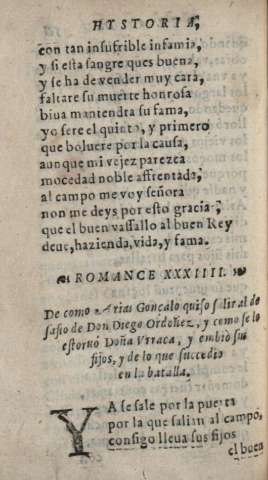 HYSTORIA,
con tan insufrible infamia,
y si esta sangre ques buena,
y se ha de vender muy cara,
faltare su muerte honrosa
biua mantendra su fama,
yo sere el quinto, y primero
que boluere por la causa,
aunque mi vejez parezca
mocedad noble affrentada,
al campo me voy señora
non me deys por esto gracias,
que el buen vassallo al buen Rey
deue, hazienda, vida, y fama.
ROMANCE XXXIIII.
De como Arias Gonçalo quiso salir al de
safio de Don Diego Ordoñez, y como se lo
estoruò Doña Vrraca, y embiò sus
fijos, y de lo que succedio
en la batalla.
YA se sale por la puerta
por la que salian al campo,
consigo lleua sus fijos
el buen